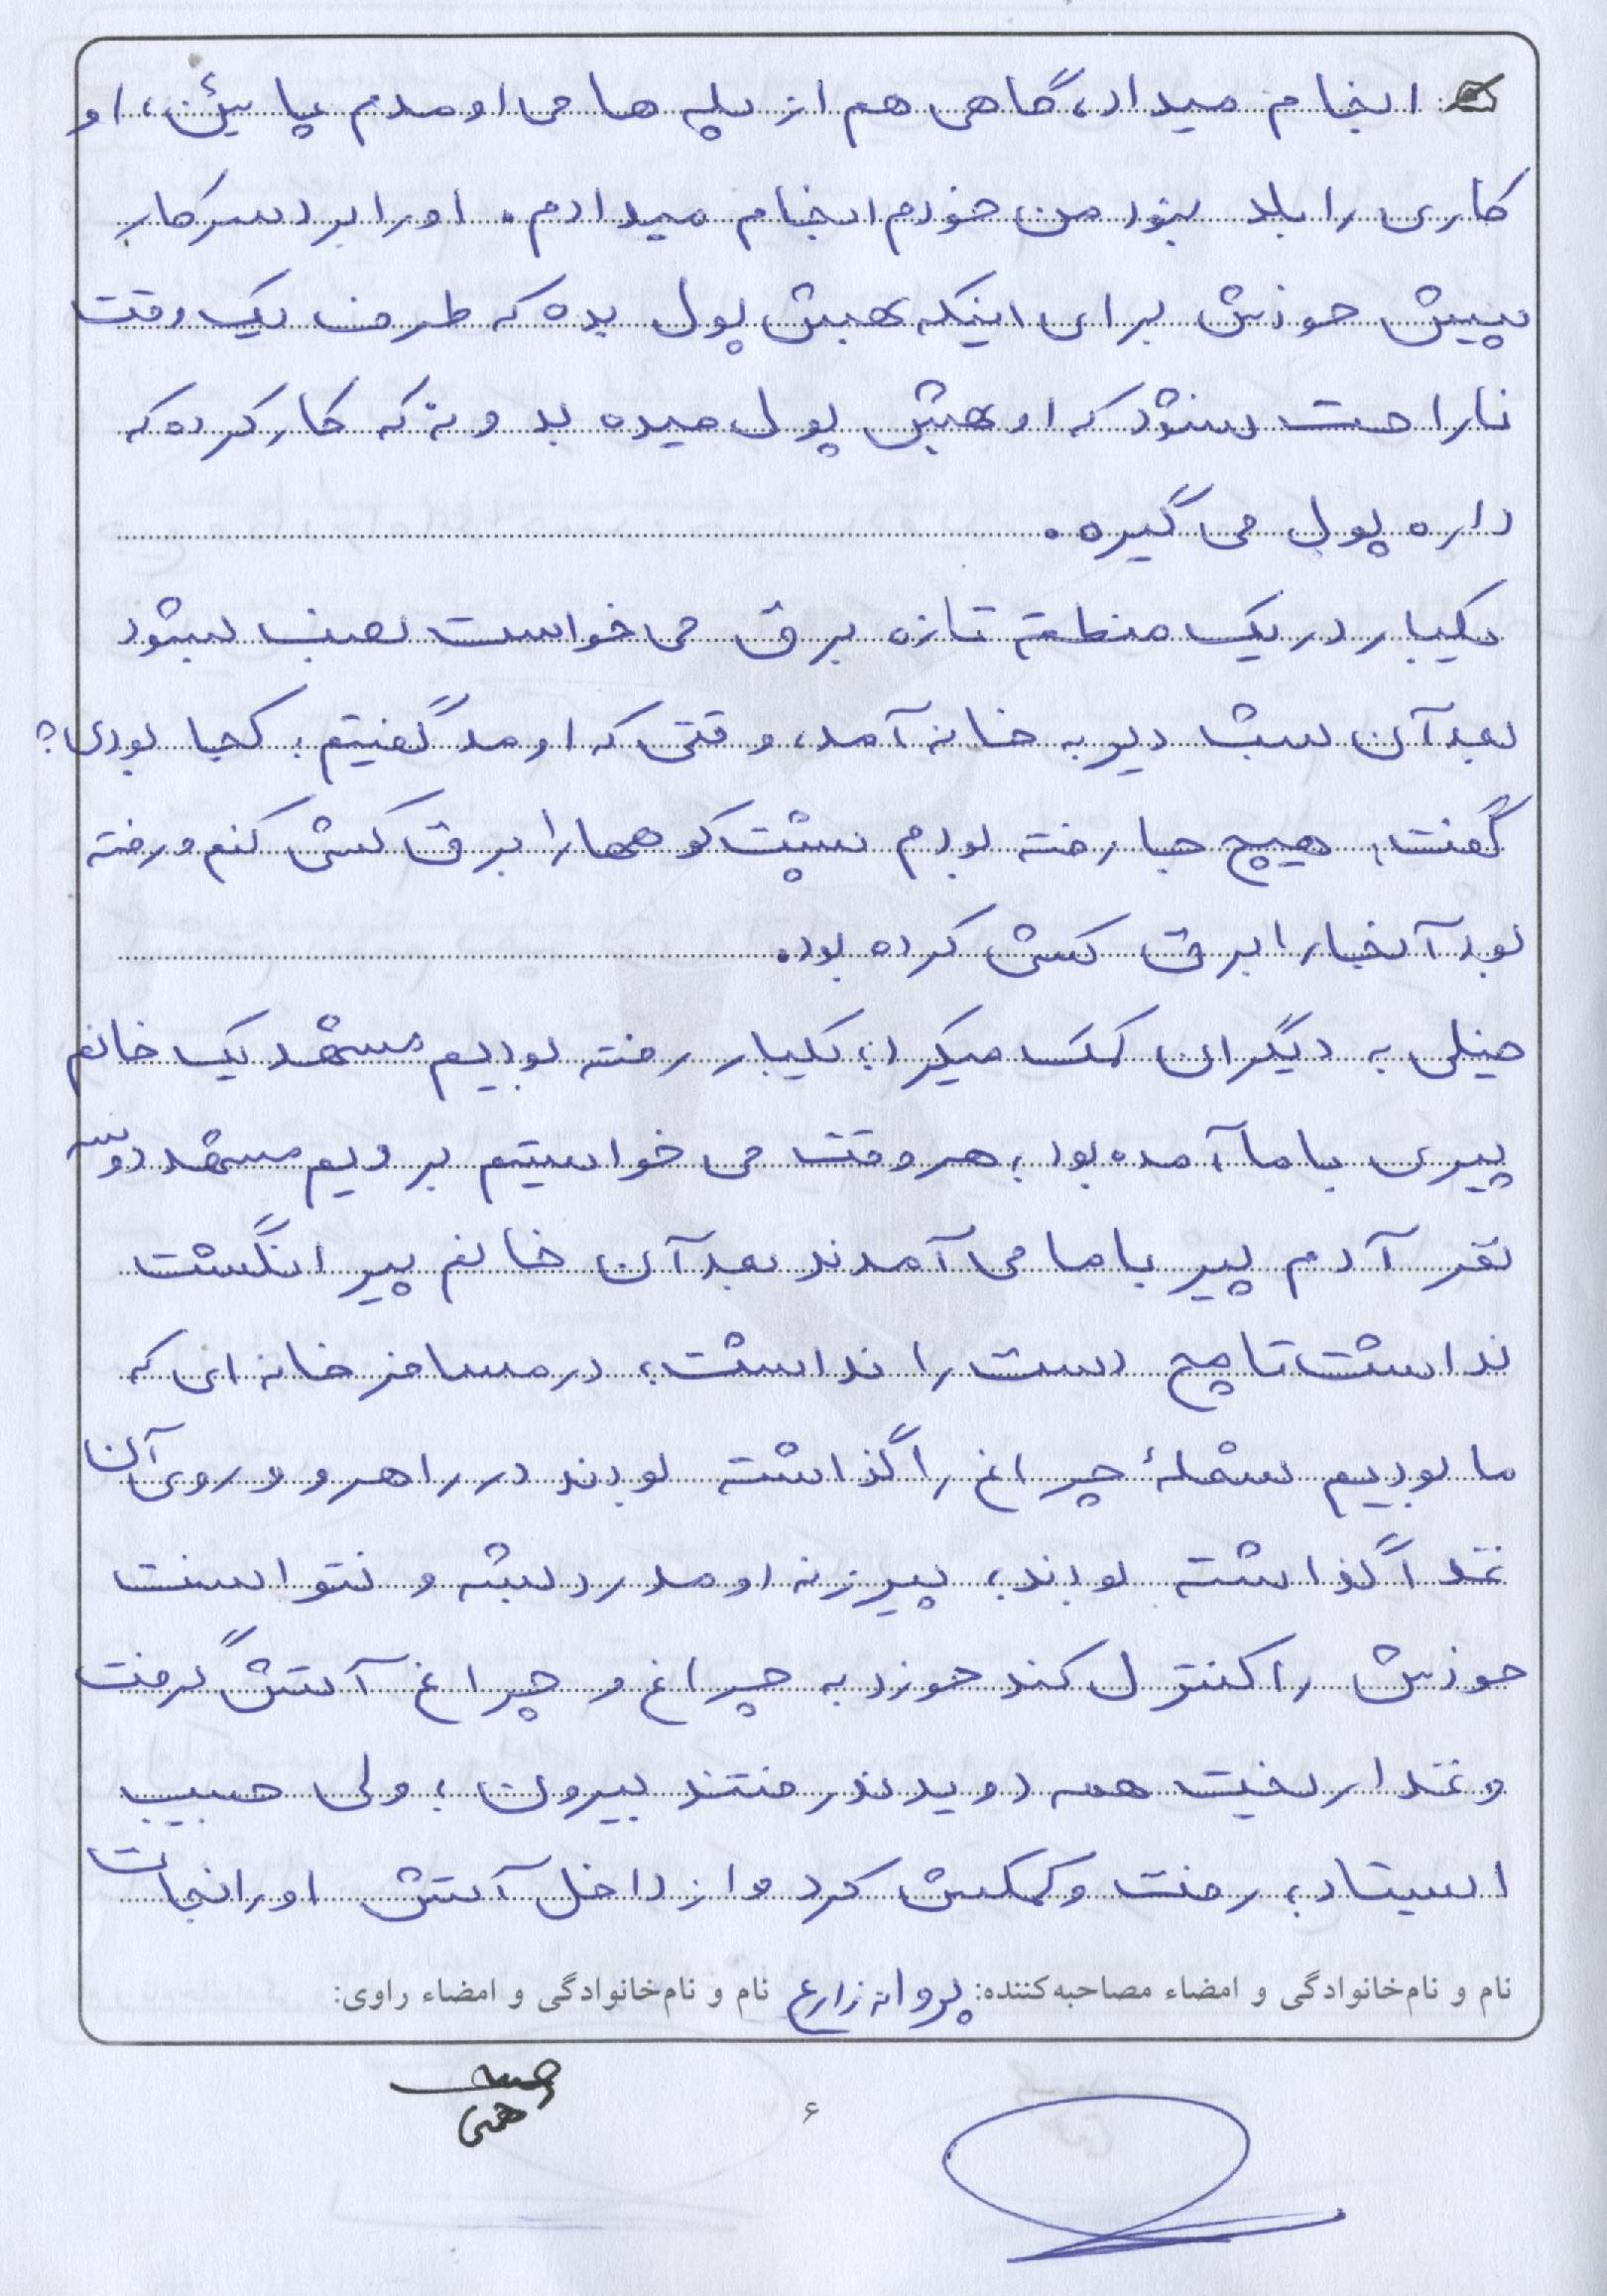 انجام میداد، گاهی هم از پله ها می اومدم پایین، او
کاری را بلد نبود من خودم انجام میدادم. او را برد سرکار
پیش خودش برای اینکه بهش پول بده که طرف یک وقت
ناراحت نشود که او بهش پول میده بدونه که کار کرده که
داره پول می گیره.
یکبار در یک منطقه تازه برق می خواست نصب بشود
بعد آن شب دیر به خانه آمد، وقتی که اومد گفتیم؛ کجا بودی؟
گفت؛ هیچ جا رفته بودم پشت کوهها را برق کشی کنم و رفته
بود آنجا را برق کشی کرده بود.
خیلی به دیگران کمک میکرد؛ یکبار رفته بودیم مشهد یک خانم
پیری با ما آمده بود؛ هر وقت می خواستیم برویم مشهد دو سه
نفر آدم پیر با ما می آمدند بعد آن خانم پیر انگشت
نداشت تا مچ دست را نداشت؛ در مسافرخانه ای که
ما بودیم شعلهٔ چراغ را گذاشته بودند در راهرو و روی آن
غذا گذاشته بودند؛ پیرزنه اومد رد بشه و نتوانست
خودش را کنترل کند خورد به چراغ و چراغ آتش گرفت
و غذا ریخت همه دویدند رفتند بیرون؛ ولی حبیب
ایستاد؛ رفت و کمکش کرد و از داخل آتش او را نجات
نام و نام‌خانوادگی و امضاء مصاحبه‌کننده: پروانه زارع نام و نام‌خانوادگی و امضاء راوی:
۶